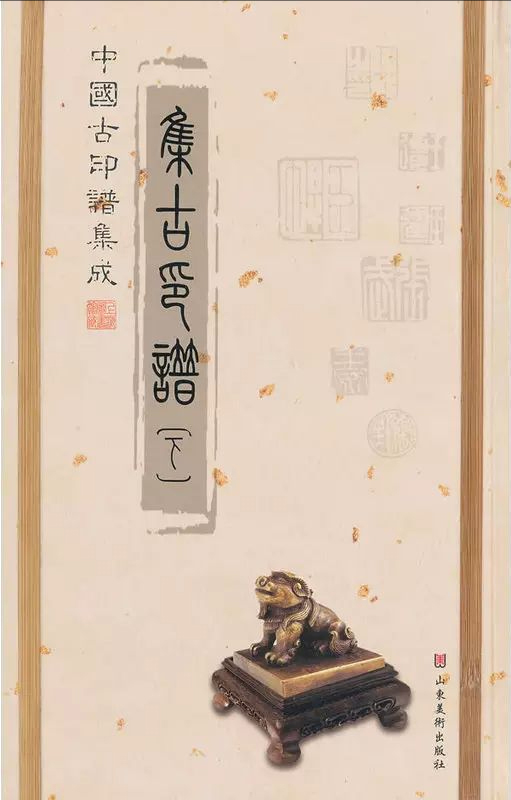 中國古印譜集成
集古印譜
〔下〕
山東美術出版社